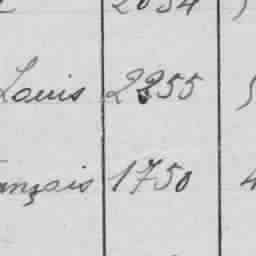 Louis 2355 5
ançais 1750 4